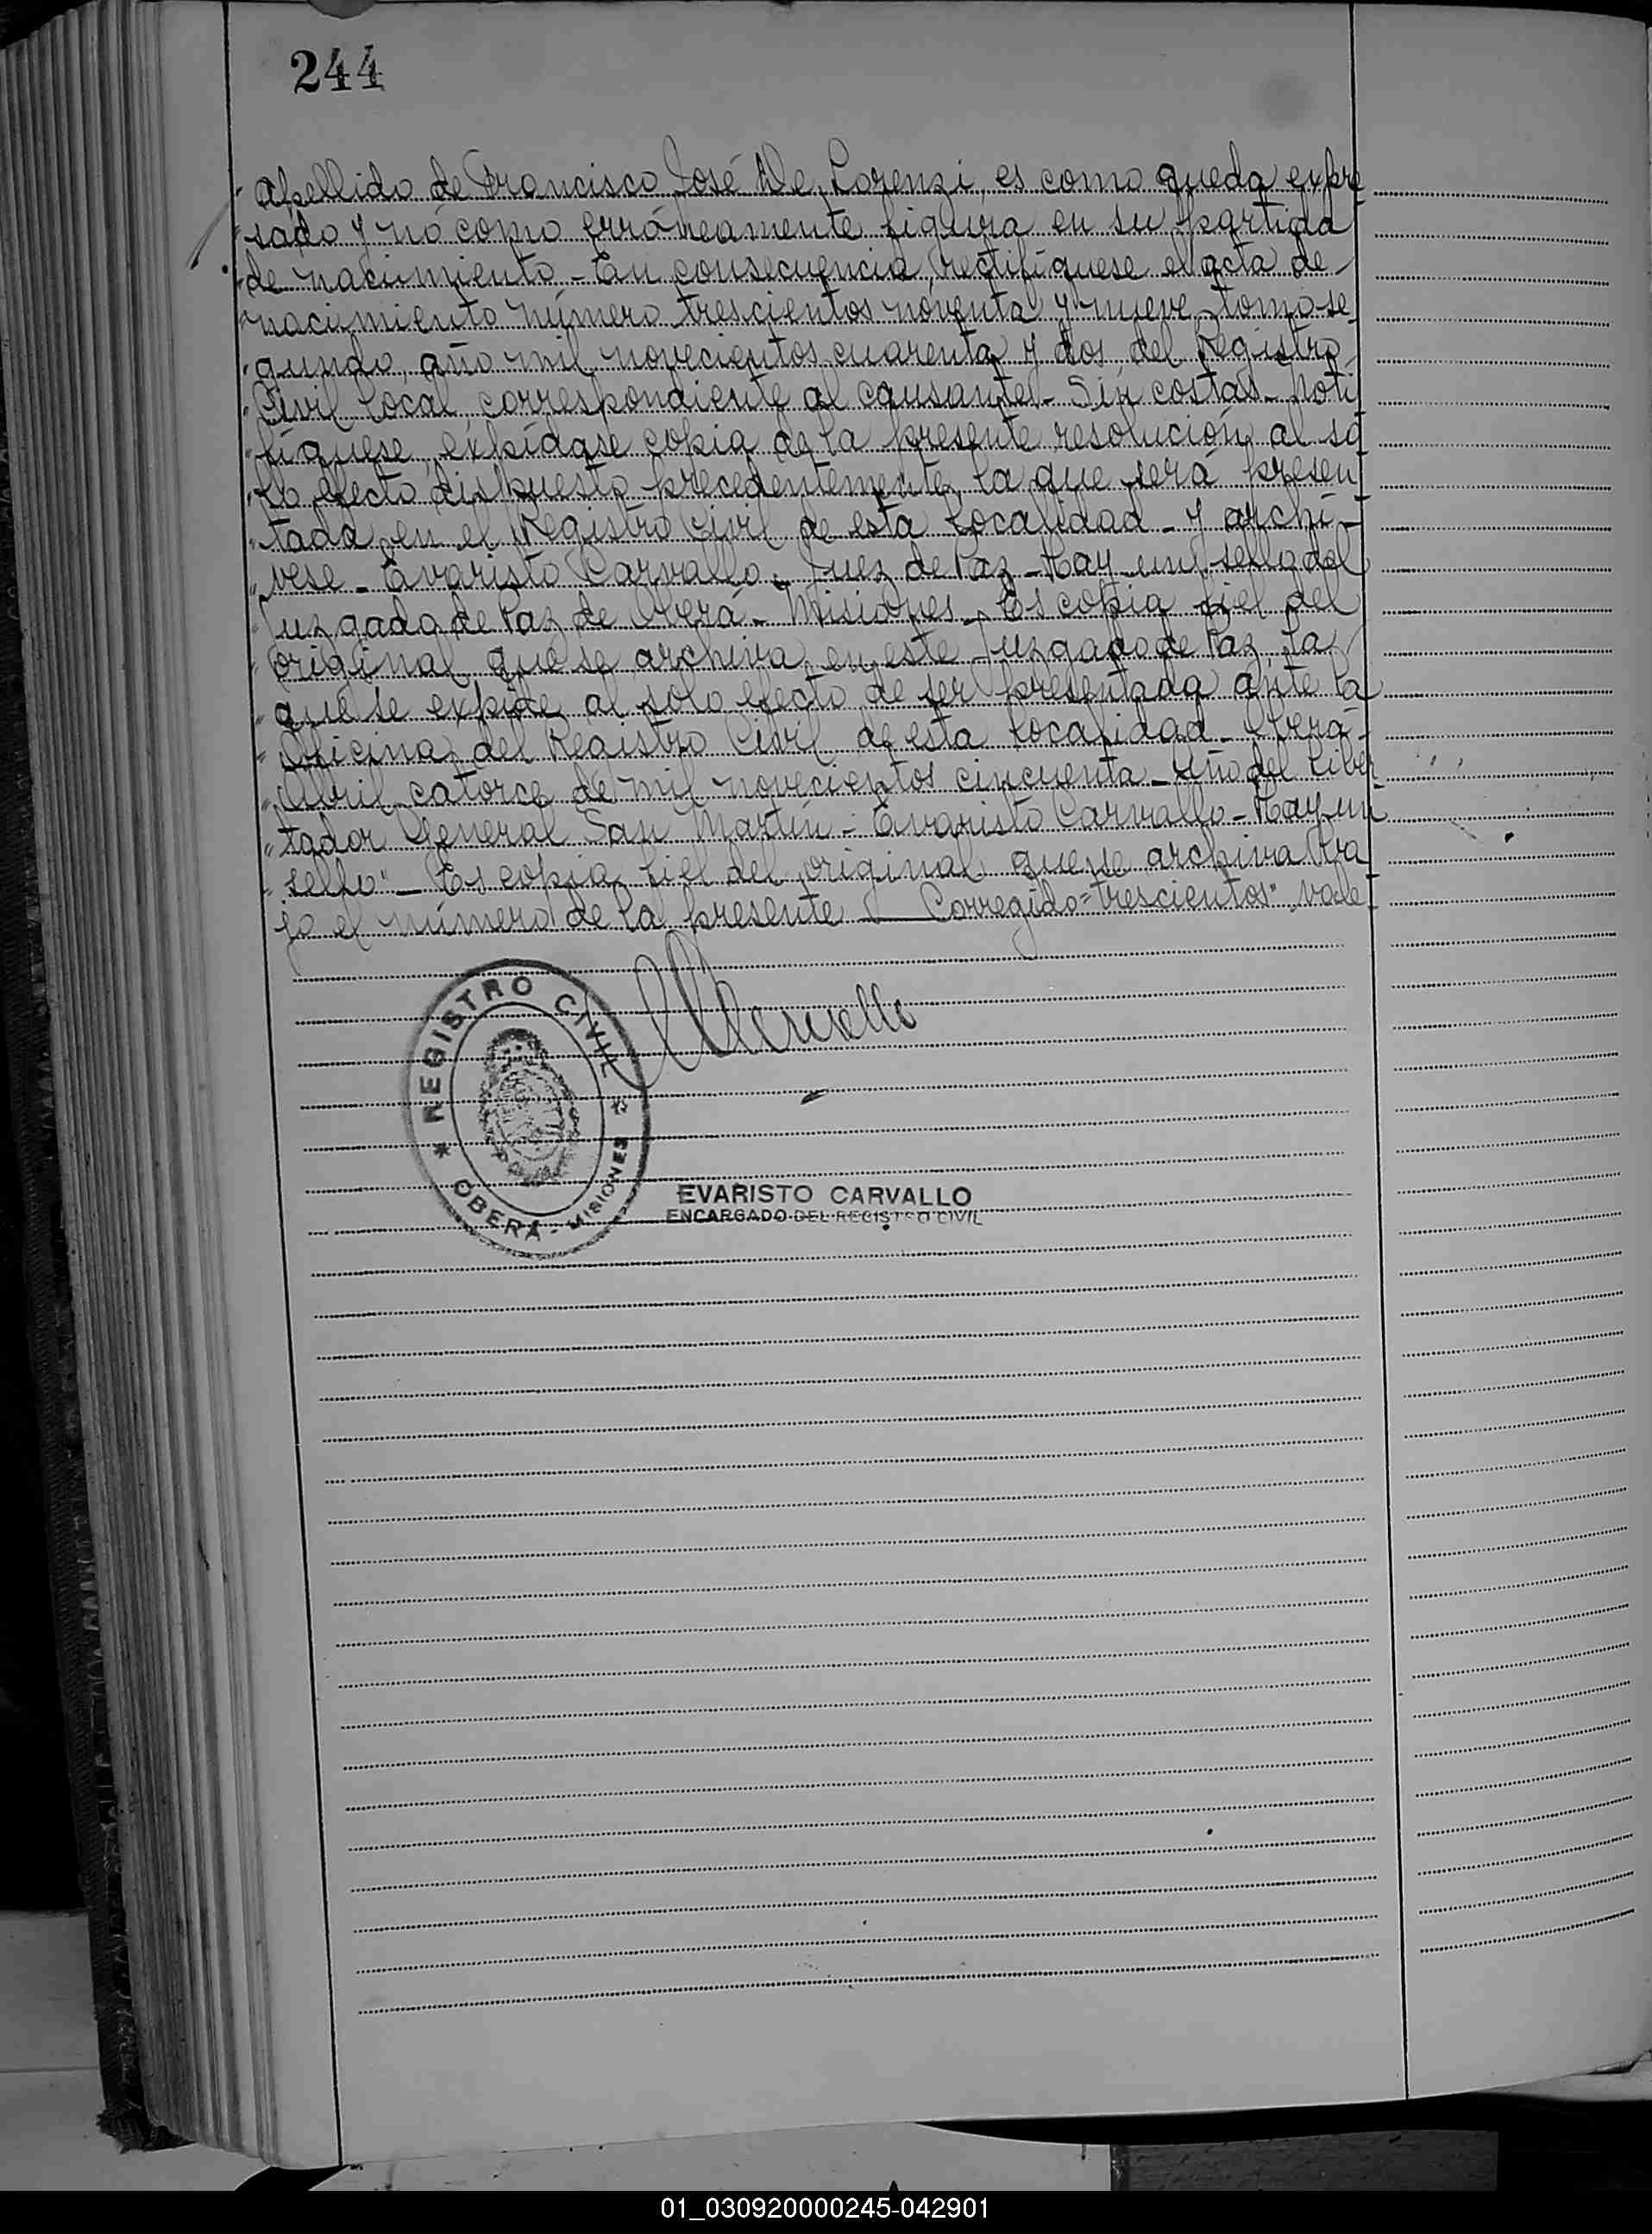 244
" apellido de Francisco José De Lorenzi, es como queda expre
" sado y nó como erróneamente figura en su partida
" de nacimiento - En consecuencia, rectifíquese el acta de
" nacimiento número trescientos noventa y nueve, tomo se
" gundo, año mil novecientos cuarenta y dos, del Registro
" Civil local, correspondiente al causante - Sin costas - Noti
" fíquese, expídase copia de la presente resolución al só
" lo efecto dispuesto precedentemente, la que será presen
" tada en el Registro Civil de esta localidad - y archí-
" vese - Evaristo Carvallo - Juez de Paz - Hay un sello del
" Juzgado de Paz de Oberá - Misiones - Es copia fiel del
" original que se archiva en este Juzgado de Paz, la
" que se expide al solo efecto de ser presentada ante la
" Oficina del Registro Civil de esta localidad - Oberá -
" Abril catorce de mil novecientos cincuenta - Año del Liber
" tador General San Martín - Evaristo Carvallo - Hay un
" sello" - Es copia fiel del original que se archiva ba
jo el número de la presente — Corregido = "trescientos" vale -
REGISTRO CIVIL
* OBERÁ - MISIONES *
EVARISTO CARVALLO
ENCARGADO DEL REGISTRO CIVIL
01_030920000245-042901